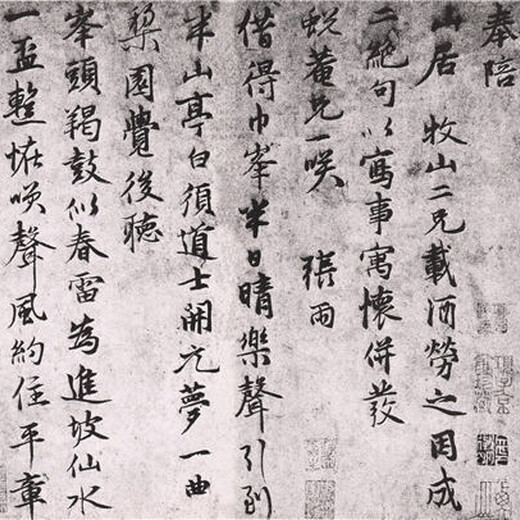 奉陪
山居 牧山二兄載酒勞之因成
二絕句以寫事寓懷併發
蛻菴兄一咲 張雨
借得巾峯半日晴樂聲引到
半山亭白須道士開元夢一曲
棃園覺後聽
峯頭羯鼓似春雷為進坡仙水
一盃整恠咲聲風約住平章